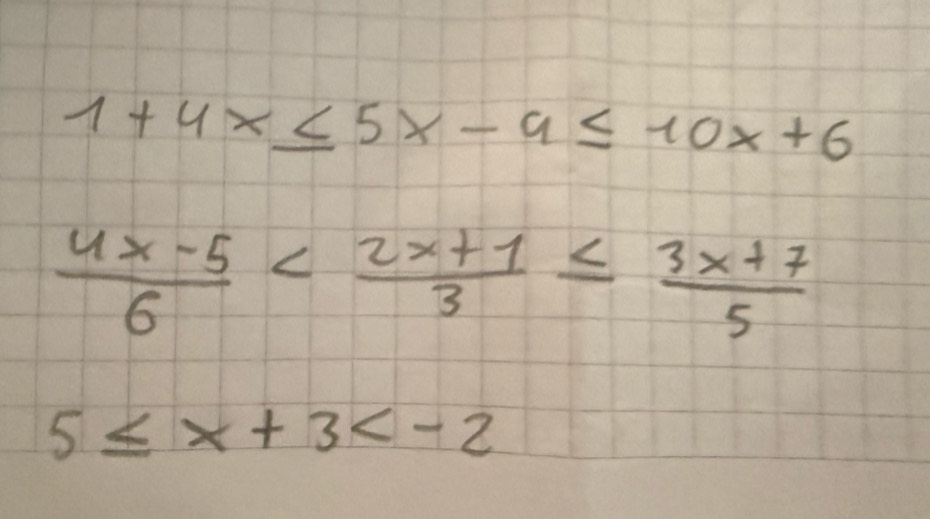 1+4x ≤ 5x - 9 ≤ 10x+6
(4x-5)/6 < (2x+1)/3 ≤ (3x+7)/5
5 ≤ x+3 < -2